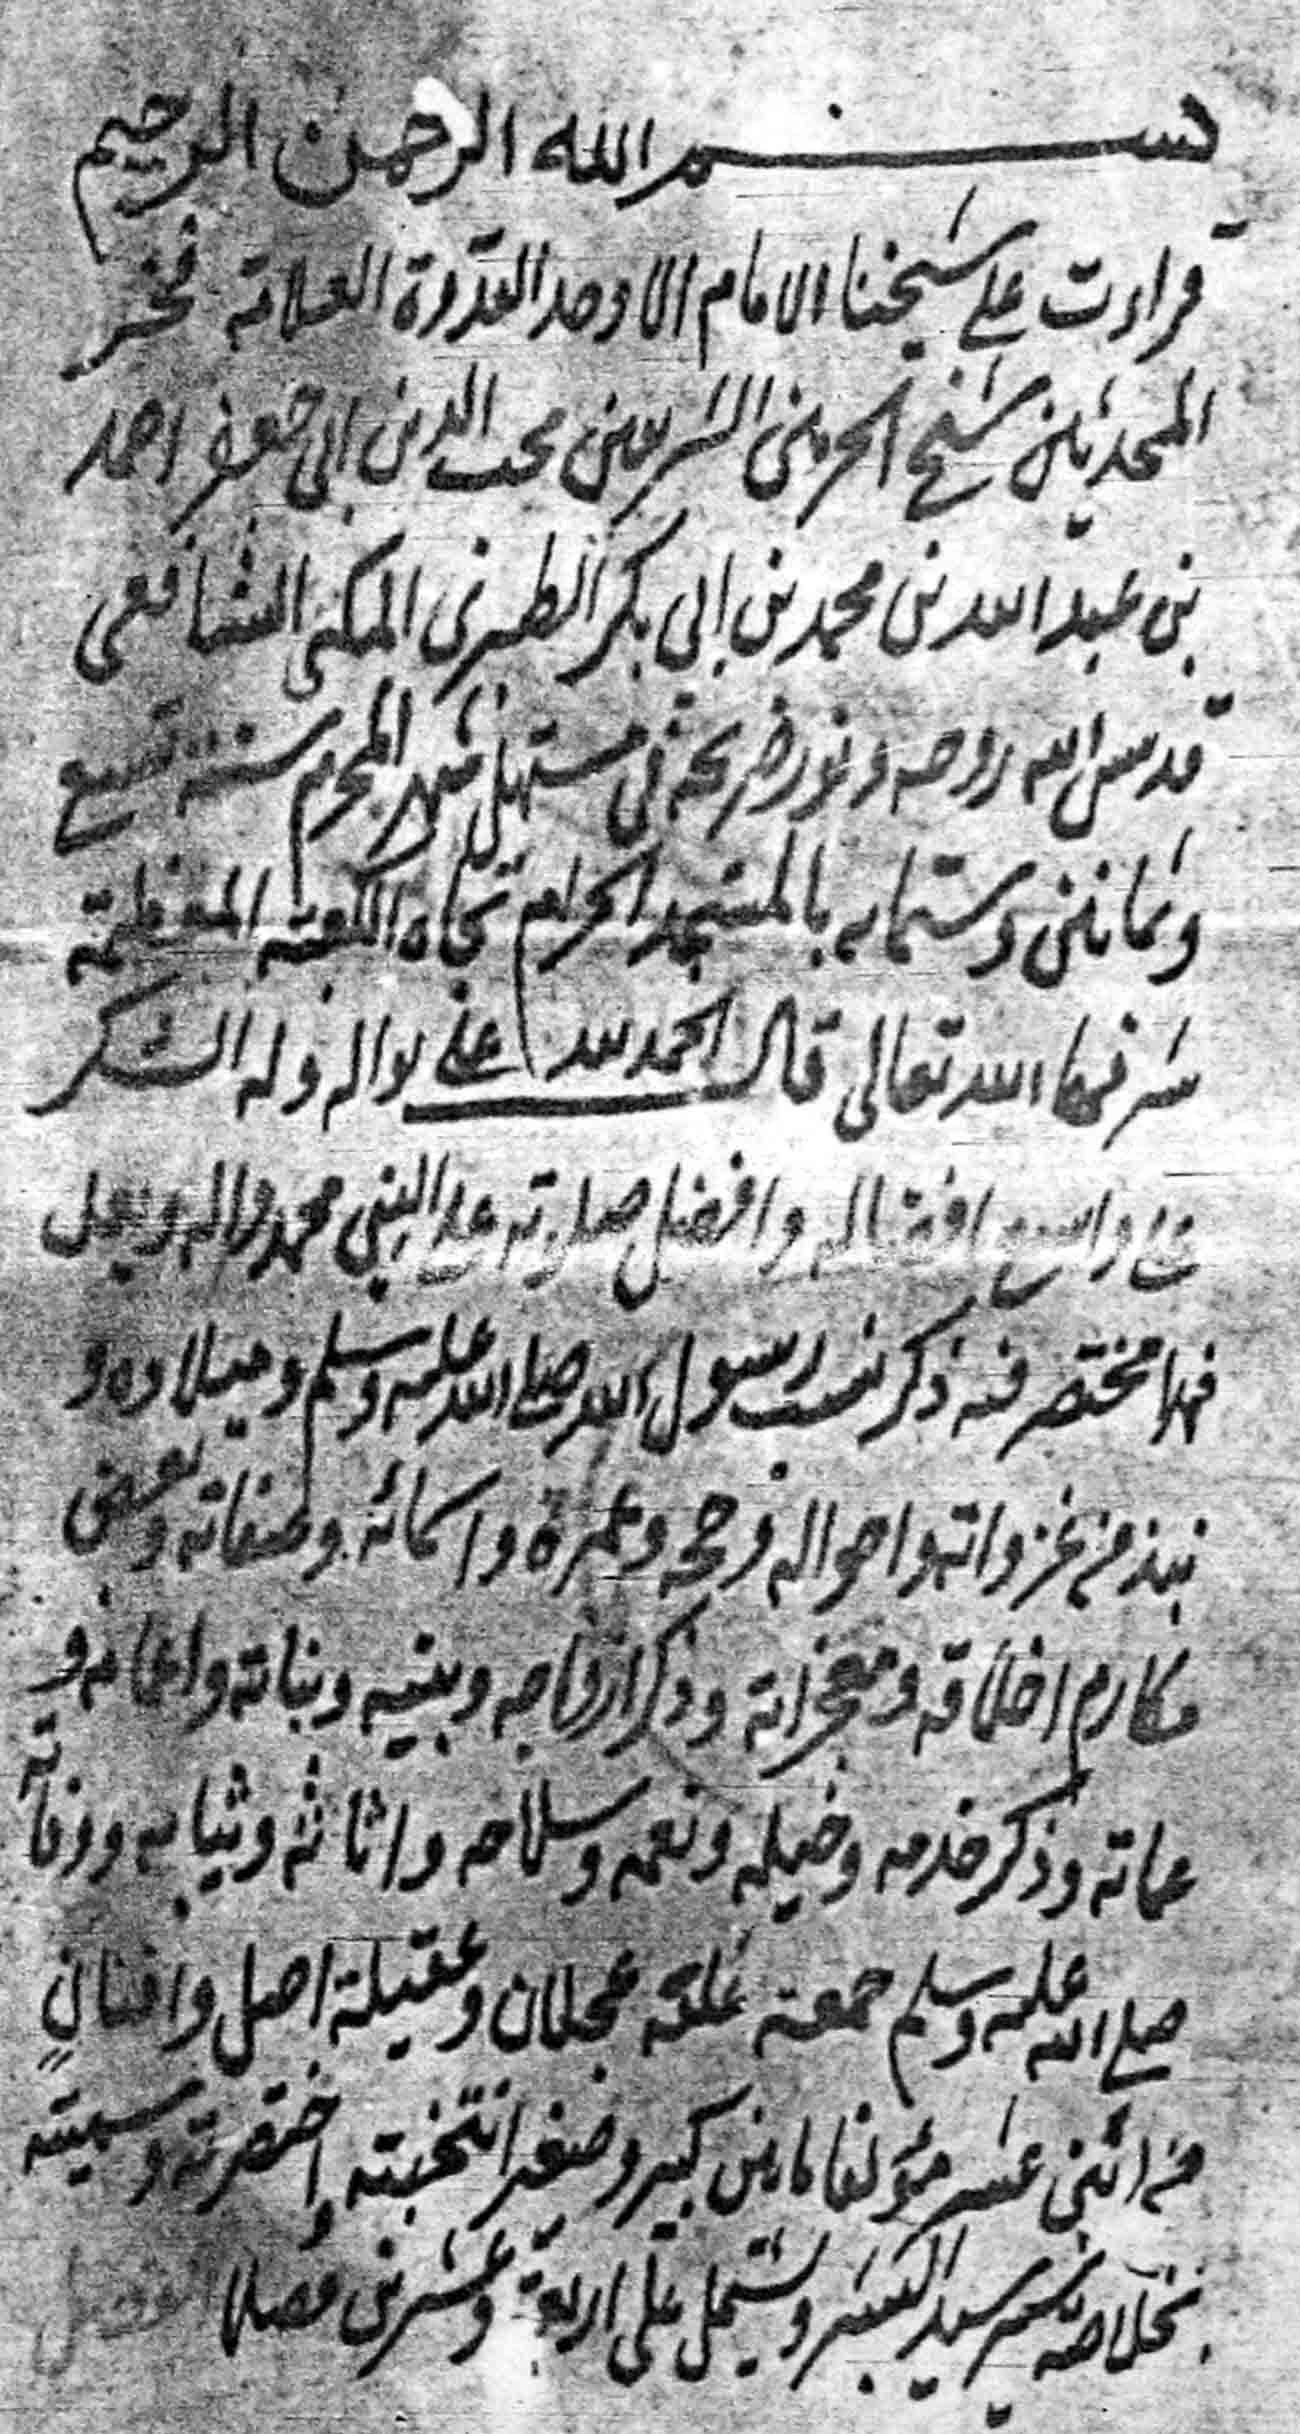 بسم الله الرحمن الرحيم
قراءت على شيخنا الامام الاوحد القدوة العلامة فخر
المحدثين شيخ الحرمين الشريفين محب الدين ابى جعفر احمد
بن عبد الله بن محمد بن ابى بكر الطبرى المكى الشافعى
قدس الله روحه ونور ضريحه فى مستهل شهر المحرم سنة تسع
وثمانين وستمايه بالمسجد الحرام تجاه الكعبة المعظمة
شرفها الله تعالى قال الحمد لله على نواله وله الشكر
على واسع افضاله وافضل صلوته على النبى محمد واله وبعل
فهذا مختصر فيه ذكر نسب رسول الله صلى الله عليه وسلم وميلاده و
نبذ من غزواته واحواله وحجه وعمرة واسمائه وصفاته وبعض
مكارم اخلاقه ومعجزاته وذكر ازواجه وبنيه وبناته واعمامه و
عماته وذكر خدمه وخيله ونعمه وسلاحه واثاثه وثيابه ووفاته
صلى الله عليه وسلم جمعته علقة عجلان وعقيلة اصل وافنان
من اثنى عشر مؤلفا مابين كبير وصغير انتخبته واختصرته وسميته
بخلاصة سير سيد البشر ويشتمل على اربعة وعشرين فصلا الفصل